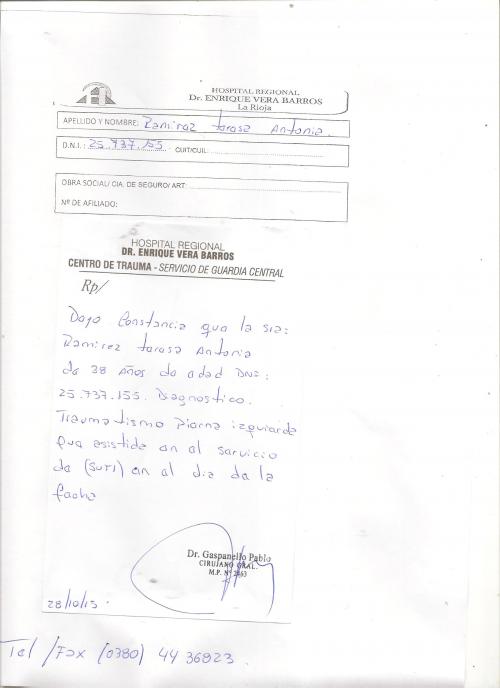 HOSPITAL REGIONAL
Dr. ENRIQUE VERA BARROS
La Rioja
APELLIDO Y NOMBRE: Ramirez Tarasa Antonia.
D.N.I.: 25.737.155 CUIT/CUIL:
OBRA SOCIAL/ CIA. DE SEGURO/ ART:
Nº DE AFILIADO:
HOSPITAL REGIONAL
DR. ENRIQUE VERA BARROS
CENTRO DE TRAUMA - SERVICIO DE GUARDIA CENTRAL
Rp/
Dajo Constancia que la sra:
Ramirez Tarasa Antonia
de 38 Años de edad DNI:
25.737.155. Diagnostico.
Traumatismo Pierna izquierda
Fue asistida en el servicio
de (SUTI) en el dia de la
fecha
Dr. Gaspanello Pablo
CIRUJANO GRAL.
28/10/15.
Tel /Fax (0380) 44 36923